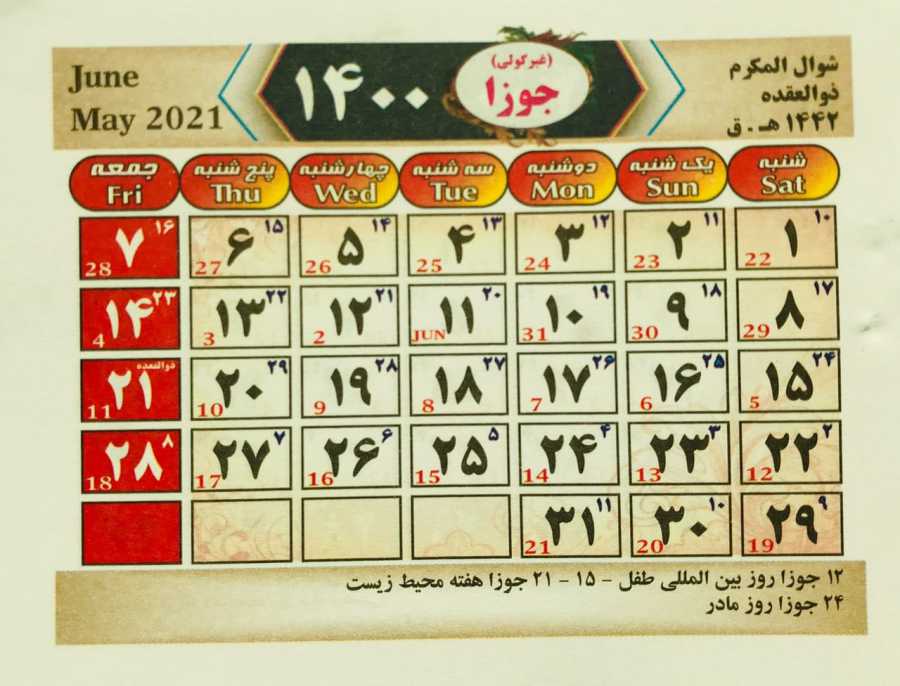 June
May 2021
۱۴۰۰
(غبرګولی)
جوزا
شوال المکرم
ذوالعقده
۱۴۴۲ هـ . ق
شنبه یک شنبه دوشنبه سه شنبه چهارشنبه پنج شنبه جمعه
Sat Sun Mon Tue Wed Thu Fri
۱۰ ۱۱ ۱۲ ۱۳ ۱۴ ۱۵ ۱۶
۱ ۲ ۳ ۴ ۵ ۶ ۷
22 23 24 25 26 27 28
۱۷ ۱۸ ۱۹ ۲۰ ۲۱ ۲۲ ۲۳
۸ ۹ ۱۰ ۱۱ ۱۲ ۱۳ ۱۴
29 30 31 JUN 2 3 4
۲۴ ۲۵ ۲۶ ۲۷ ۲۸ ۲۹ ذوالقعده
۱۵ ۱۶ ۱۷ ۱۸ ۱۹ ۲۰ ۲۱
5 6 7 8 9 10 11
۲ ۳ ۴ ۵ ۶ ۷ ۸
۲۲ ۲۳ ۲۴ ۲۵ ۲۶ ۲۷ ۲۸
12 13 14 15 16 17 18
۹ ۱۰ ۱۱
۲۹ ۳۰ ۳۱
19 20 21
۱۲ جوزا روز بین المللی طفل - ۱۵ - ۲۱ جوزا هفته محیط زیست
۲۴ جوزا روز مادر